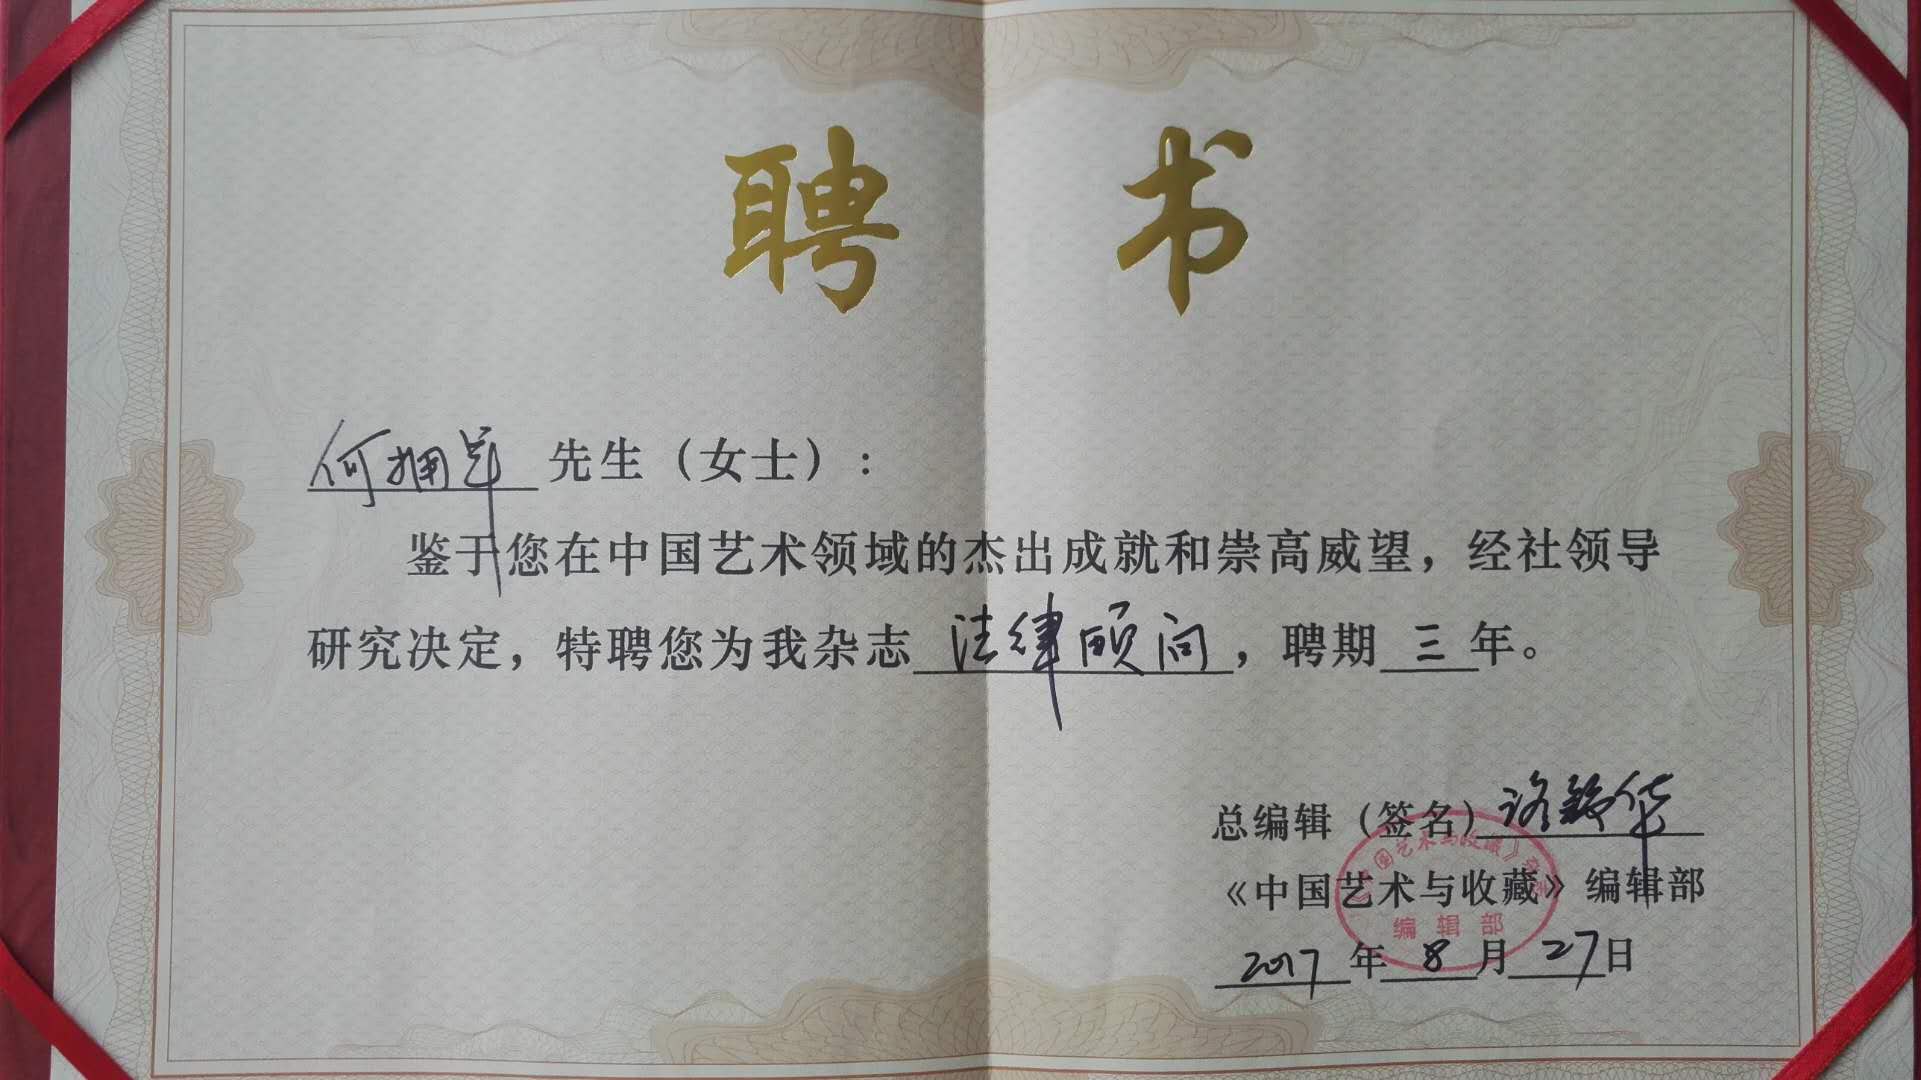 聘 书
何拥军 先生（女士）：
鉴于您在中国艺术领域的杰出成就和崇高威望，经社领导
研究决定，特聘您为我杂志 法律顾问 ，聘期 三 年。
总编辑（签名）
《中国艺术与收藏》编辑部
国艺术与收藏》杂志
编辑部
2017 年 8 月 27 日